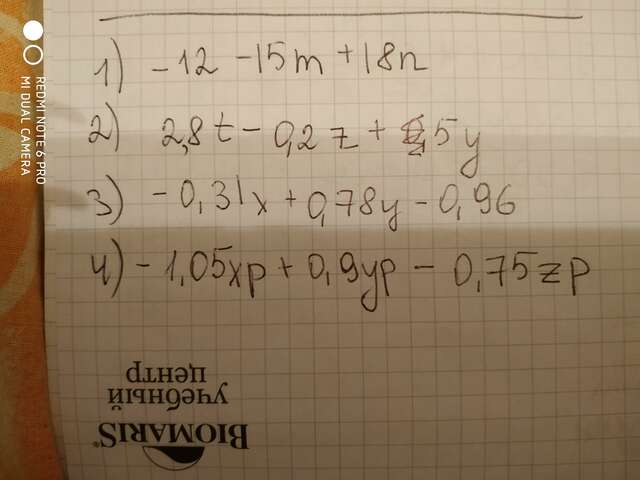 1) -12 -15m +18n
2) 2,8t - 0,2z + 2,5y
3) -0,31x + 0,78y - 0,96
4) -1,05xp + 0,9yp - 0,75zp
BIOMARIS®
учебный
центр
REDMI NOTE 6 PRO
MI DUAL CAMERA